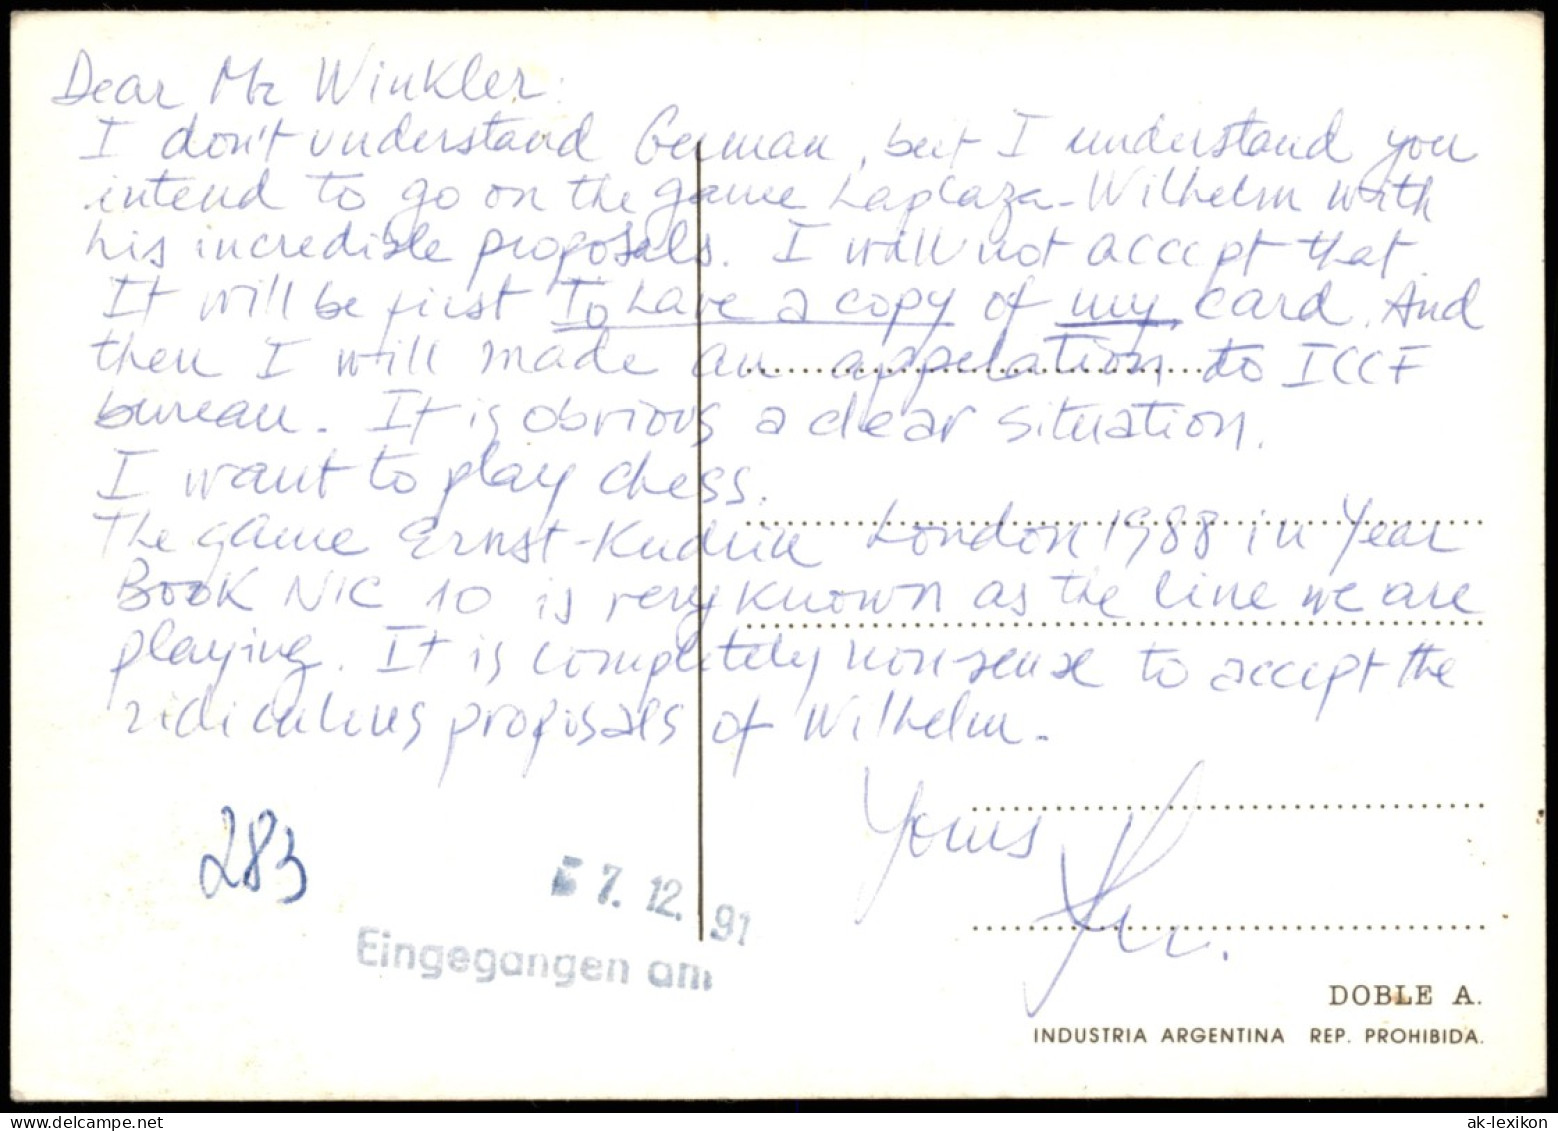 Dear Mr Winkler:
I don't understand German, but I understand you
intend to go on the game Laplaza-Wilhelm with
his incredible proposals. I will not accept that.
It will be first To have a copy of my card. And
then I will made an appelation to ICCF
bureau. It is obvious a clear situation.
I want to play chess.
The game Ernst-Kudrin London 1988 in Year
Book NIC 10 is very known as the line we are
playing. It is completely nonsense to accept the
ridiculous proposals of Wilhelm.
Yours
283
7. 12. 91
Eingegangen am
DOBLE A.
INDUSTRIA ARGENTINA REP. PROHIBIDA.
ak-lexikon.com